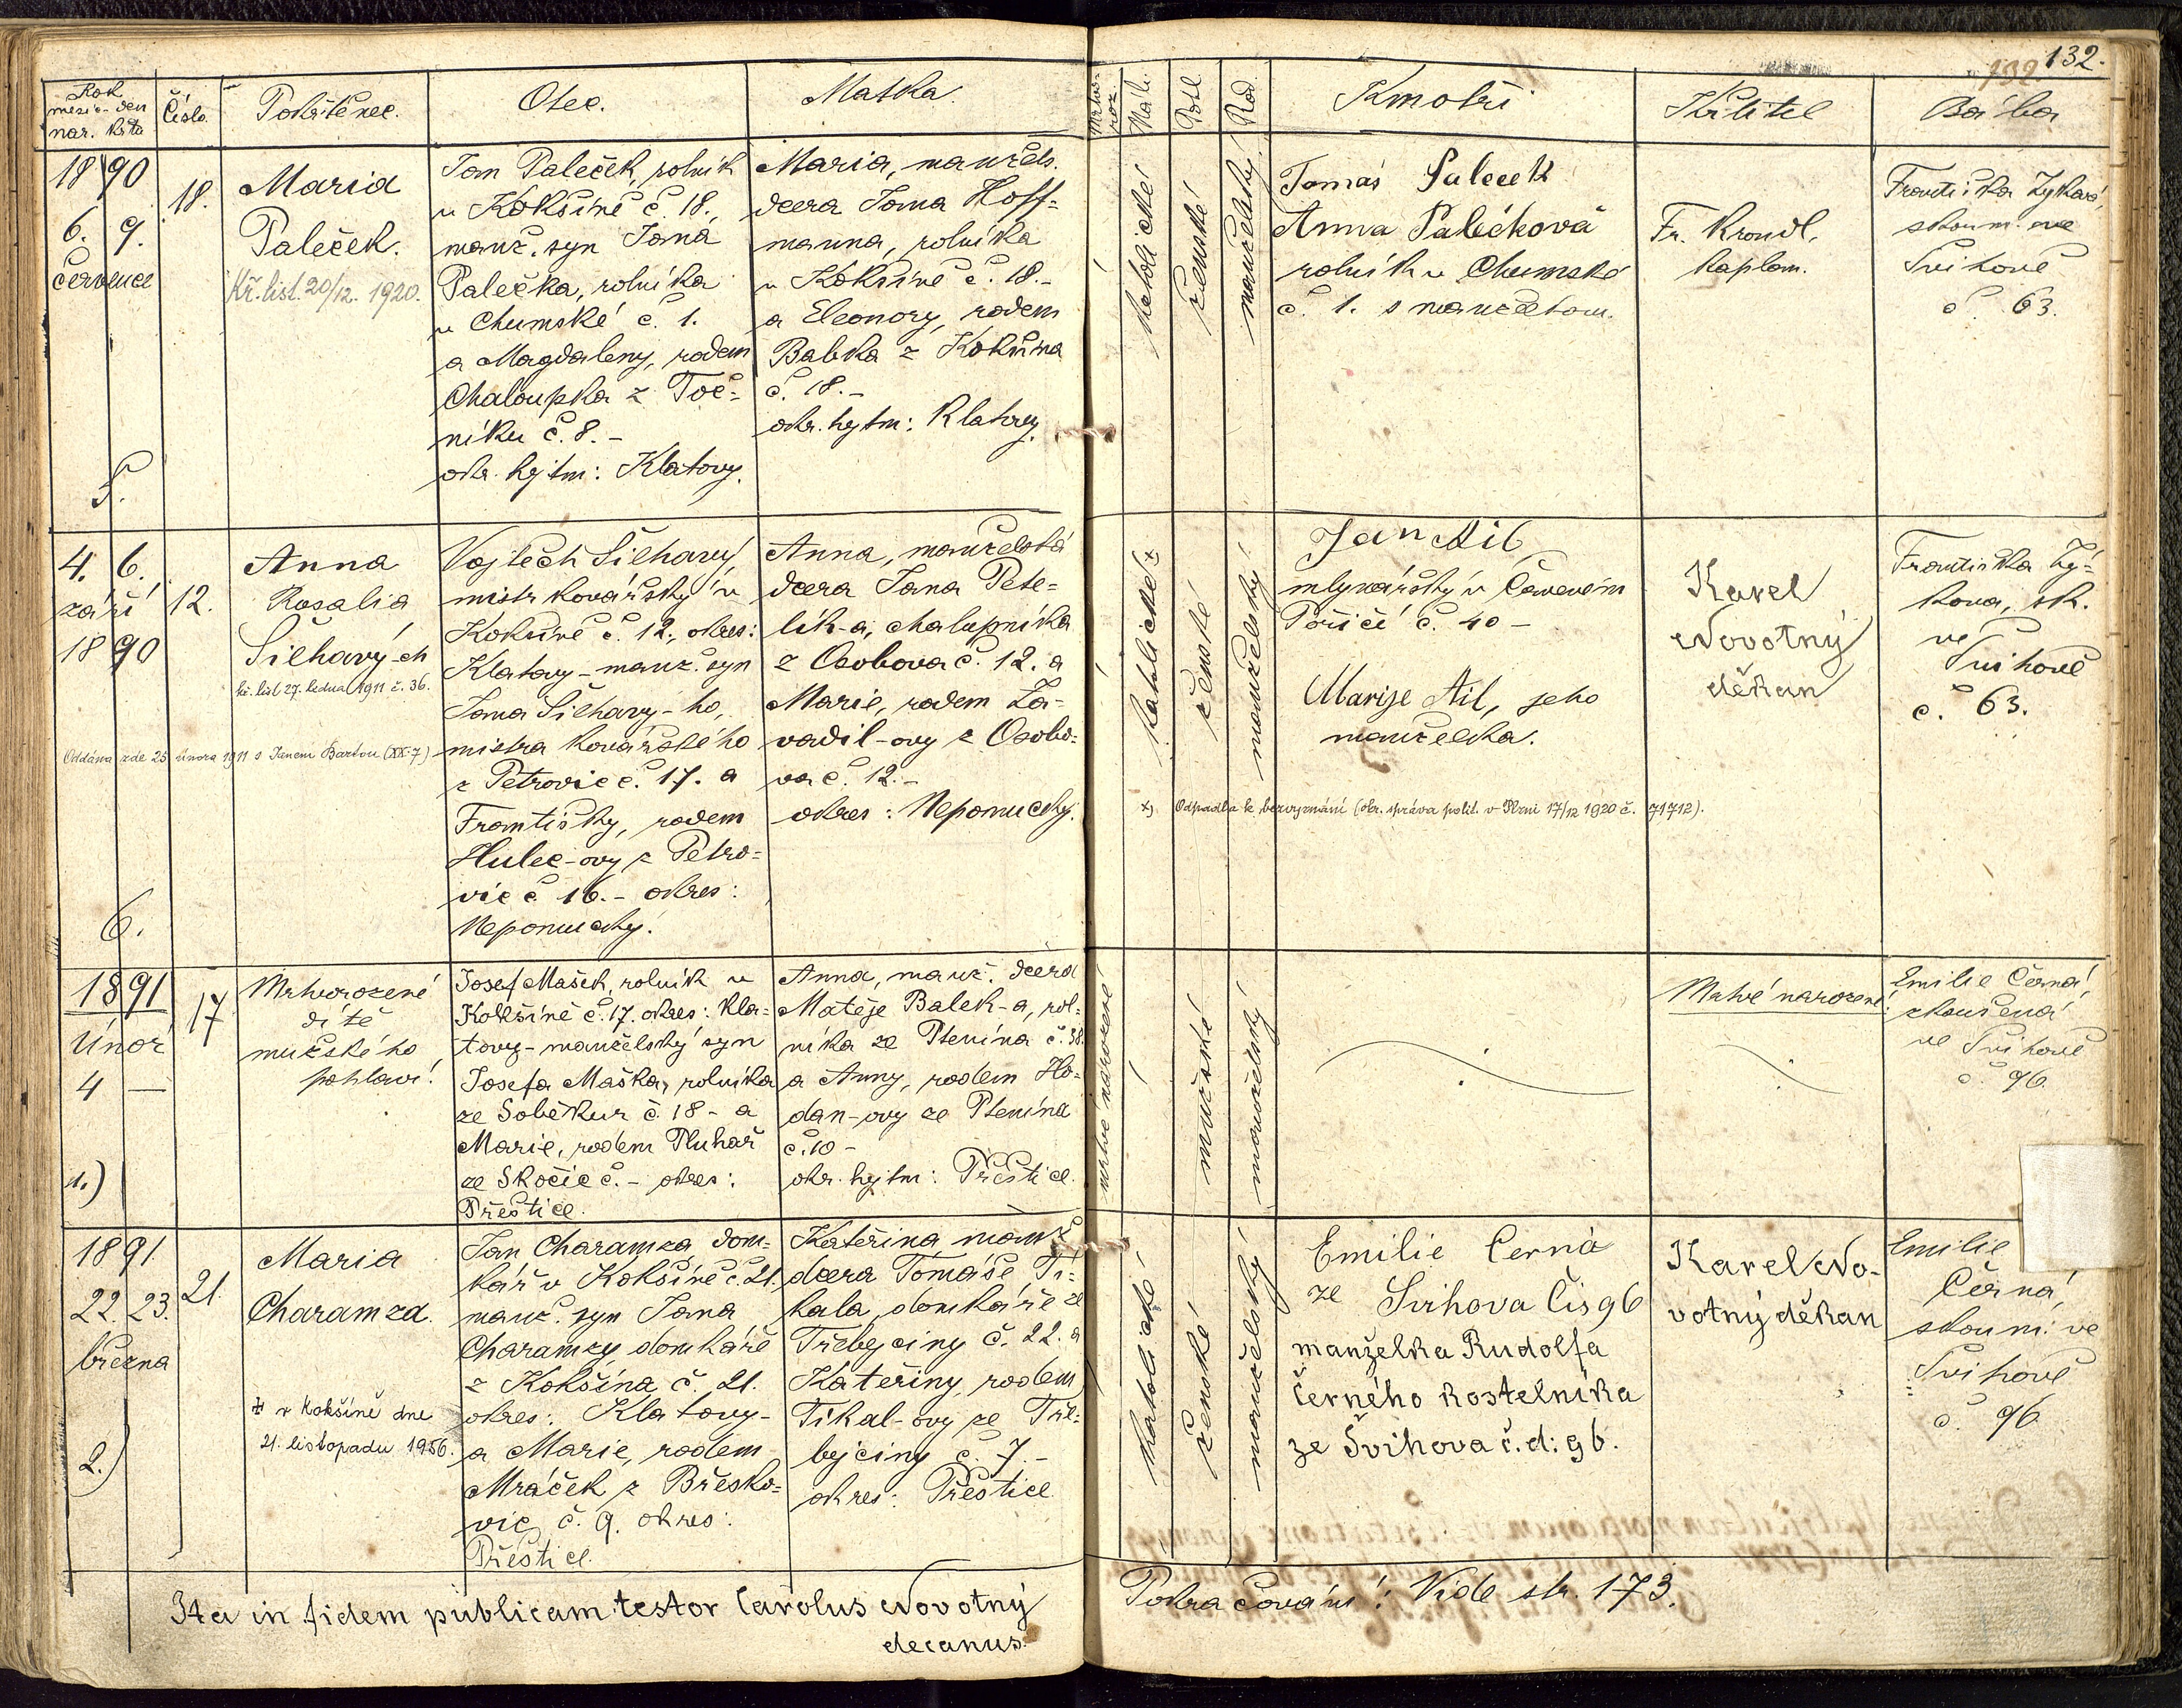 132.
Rok
měsíc - den
nar. křtu
Číslo
Pokřtěnec.
Otec.
Matka.
Mrtvo-
roz.
Náb.
Pohl.
Rod.
Kmotři
Křtitel
Bába
1890
6. 9.
července
5.
18.
Maria
Paleček.
Kř. list. 20/12. 1920.
Jan Paleček, rolník
v Kokšíně č. 18.,
manž. syn Jana
Palečka, rolníka
v Chumské č. 1.
a Magdaleny, rodem
Chaloupka z Toč=
níku č. 8. -
okr. hejtm: Klatovy.
Maria, manžels.
dcera Jana Hoff=
manna, rolníka
v Kokšíně č. 18.-
a Eleonory, rodem
Babka z Kokšína
č. 18. -
okr. hejtm: Klatovy.
katolické
ženské
manželský
Tomáš Paleček
Anna Palečková
rolník v Chumské
č. 1. s manželkou.
Fr. Krondl,
kaplan.
Františka Zyková,
zkoum. ve
Švihově
č. 63.
4. 6.
září
1890
6.
12.
Anna
Rosalia
Šilhavý-ch
kř. list 27. ledna 1911 č. 36.
Oddána zde 25. února 1911 s Janem Bartou (XX-7)
Vojtěch Šilhavý,
mistr kovářský v
Kokšíně č. 12., okres:
Klatovy - manž. syn
Jana Šilhavý-ho,
mistra kovářského
z Petrovic č. 17. a
Františky, rodem
Hulec-ovy z Petro=
vic č 16. - okres:
Nepomucký.
Anna, manželská
dcera Jana Pete=
lík-a, chalupníka
z Osobova č. 12. a
Marie, rodem Za=
vadil-ovy z Osobo=
va č. 12. -
okres: Nepomucký.
katolické x
ženské
manželský
Jan Ail
mlynářský v Červeném
Poříčí č. 40 -
Marije Ail, jeho
manželka.
x) Odpadla k bezvyznání (okr. správa polit. v Plzni 17/12 1920 č. 71712).
Karel
Novotný
děkan
Františka Zý=
kova, zk.
ve
Švihově
č. 63.
1891
Únor
4 —
1.)
17
Mrtvorozené
dítě
mužského
pohlaví.
Josef Mašek, rolník v
Kokšíně č. 17. okres: Kla=
tovy - manželský syn
Josefa Maška, rolníka
ze Soběkur č. 18 - a
Marie, rodem Pluhař
ze Skočic č. - okres:
Přeštice.
Anna, manž. dcera
Matěje Balek-a, rol=
níka ze Ptenína č. 38.
a Anny, rodem Ho=
dan-ovy ze Ptenína
č. 10 -
okr. hejtm: Přeštice.
mrtvě narozené
mužské
manželský
Mrtvě narozené!
Emilie Černá,
zkoušená
ve Švihově
č. 96.
1891.
22. 23.
března
2.)
21.
Maria
Charamza.
± v Kokšíně dne
21. listopadu 1956.
Jan Charamza, dom=
kář v Kokšíně č. 21.
manž. syn Jana
Charamzy, domkáře
z Kokšína č. 21.
okres: Klatovy -
a Marie, rodem
Mráček z Břesko=
vic č. 9. okres:
Přeštice.
Kateřina manž.
dcera Tomáše Ti=
kala, domkáře ze
Třebejciny č. 22. a
Kateřiny, rodem
Tikal-ovy ze Tře=
bejciny č. 7. -
okres: Přeštice
katolické
ženské
manželský
Emilie Černá
ze Švihova čis 96
manželka Rudolfa
Černého kostelníka
ze Švihova č. d: 96.
Karel No-
votný děkan
Emilie
Černá,
zkoum: ve
Švihově
č. 96.
Ita in fidem publicam testor Carolus Novotný
decanus.
Pokračování: Vide str. 173.